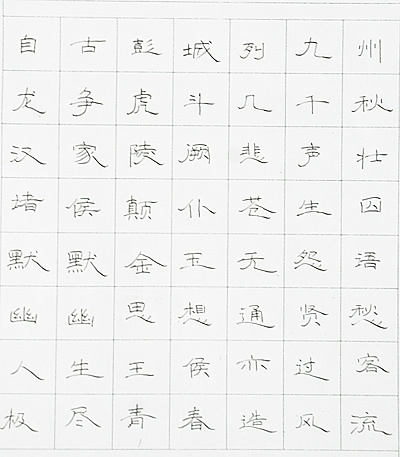 自古彭城列九州
龙争虎斗几千秋
汉家陵阙悲声壮
堵侯颠仆苍生囚
默默金玉无怨语
幽幽思想通贤愁
人生王侯亦过客
极尽青春造风流